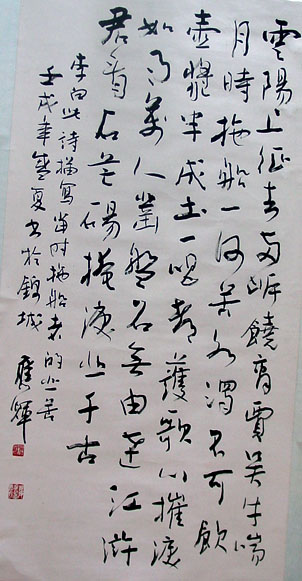 雲陽上征去兩岸饒商賈吳牛喘
月時拖船一何苦水濁不可飲
壺漿半成土一唱都護歌心摧淚
如雨萬人鑿盤石無由達江滸
君看石芒碭掩淚悲千古
李白此詩描寫當时拖船者的悲苦
壬戌年盛夏书於錦城
應輝